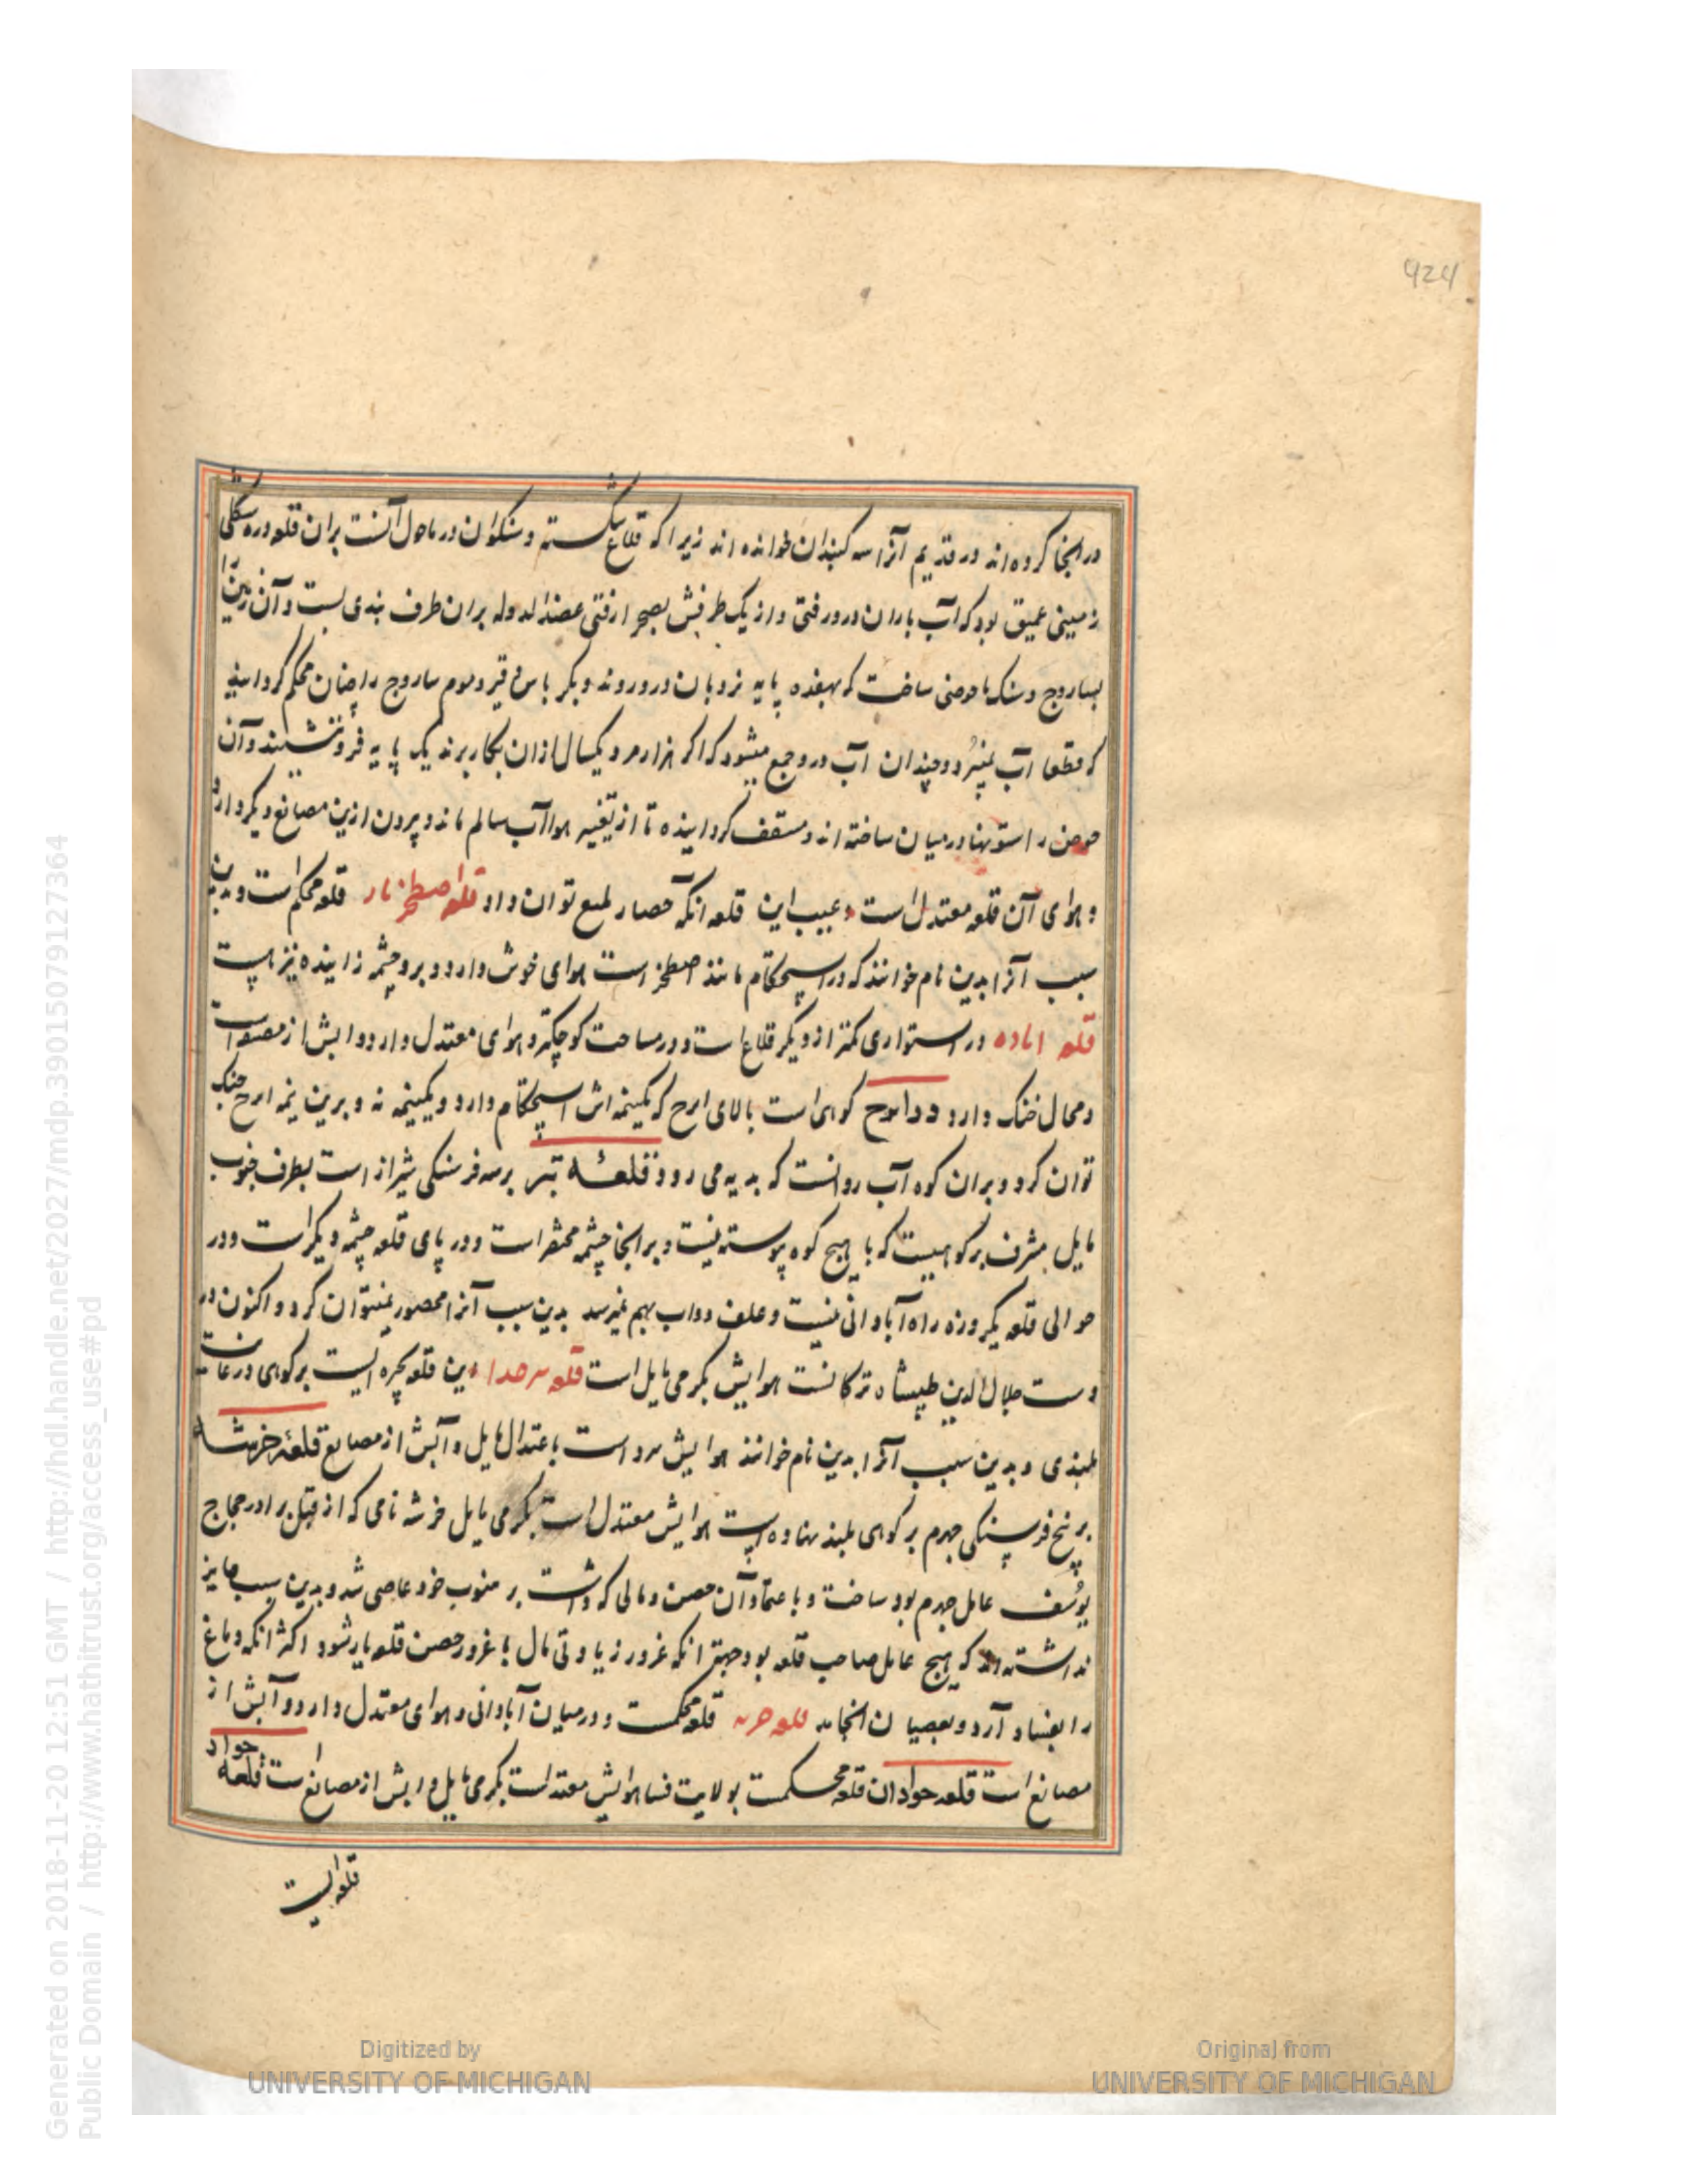 424
در انجا کرده‌اند در قدیم آنرا سه کنبدان خوانده‌اند زیرا که قلاع شکسته و شنکوان در ماحول آنست بران قلعه دره شکلی
زمینی عمیق بود که آب باران درو رفتی و از یک طرفش بصحرا رفتی عضدالدوله بران طرف بندی بست و آن زمین را
بساروج و سنک با حوضی ساخت که بهفده پایه نردبان درو روند و بکرباس و قیر و موم ساروج را چنان محکم کردانید
که قطعا آب نمیبرد و چندان آب درو جمع میشود که اکر هزار مرد یکسال ازان بکار برند یک پایه فرو ننشیند و آن
حوض را ستونها در میان ساخته‌اند و مسقف کردانیده تا از تغییر هوا آب سالم ماند و برون ازین مصانع دیکر دارد
و هوای آن قلعه معتدل است و عیب این قلعه انکه حصار بمیع توان داد قلعه اصطخر نار قلعه محکم است و بدین
سبب آنرا بدین نام خوانند که در استحکام مانند اصطخر است هوای خوش دارد و برو چشمه زاینده نیز هست
قلعه اباده در استواری کمتر از دیکر قلاع است و در مساحت کوچکتر و هوای معتدل دارد و ابش از مصنوات
و محال خنک دارد و دراسرح کوهی است بالای ایرج که یکنیمه‌اش استحکام دارد و یکنیمه نه و برین نیمه ایرج جنک
توان کرد و بران کوه آب روانست که بدیه می رود قلعه تبر بر سه فرسنکی شیراز است بطرف جنوب
مایل مشرف بر کوهیست که با هیچ کوه پیوسته نیست و بر انجا چشمه مختصر است و در پای قلعه چشمه دیکر است و در
حوالی قلعه یکروزه راه آبادانی نیست و علف دواب بهم نمیرسد بدین سبب آنرا محصور نمیتوان کرد و اکنون در
دست جلال الدین طیبشاه ترکانست هوایش بکرمی مایل است قلعه برحدا این قلعه بحره ایست بر کوهی در غایت
بلندی و بدین سبب آنرا بدین نام خوانند هوایش سرد است باعتدال مایل و آبش از مصانع قلعه خرشه
بر پنج فرسنکی جهرم بر کوهی بلند نهاده است هوایش معتدل است بکرمی مایل خرشه نامی که از قبل برادر حجاج
یوسف عامل جهرم بود ساخت و باعتماد آن حصن و مالی که داشت بر منوب خود عاصی شد و بدین سبب جایز
نداشته‌اند که هیچ عامل صاحب قلعه بود جهة انکه غرور زیادتی مال با غرور حصن قلعه یار شود اکثر انکه دماغ
را بفساد آرد و بعصیان انجامد قلعه خرمه قلعه محکمست و در میان آبادانی و هوای معتدل دارد و آبش از
مصانع است قلعه خوادان قلعه محکمست بولایت فسا هوایش معتدلست بکرمی مایل و ابش از مصانع است قلعه خواد
قلعه ایست
Generated on 2018-11-20 12:51 GMT / http://hdl.handle.net/2027/mdp.39015079127364
Public Domain / http://www.hathitrust.org/access_use#pd
Digitized by
UNIVERSITY OF MICHIGAN
Original from
UNIVERSITY OF MICHIGAN